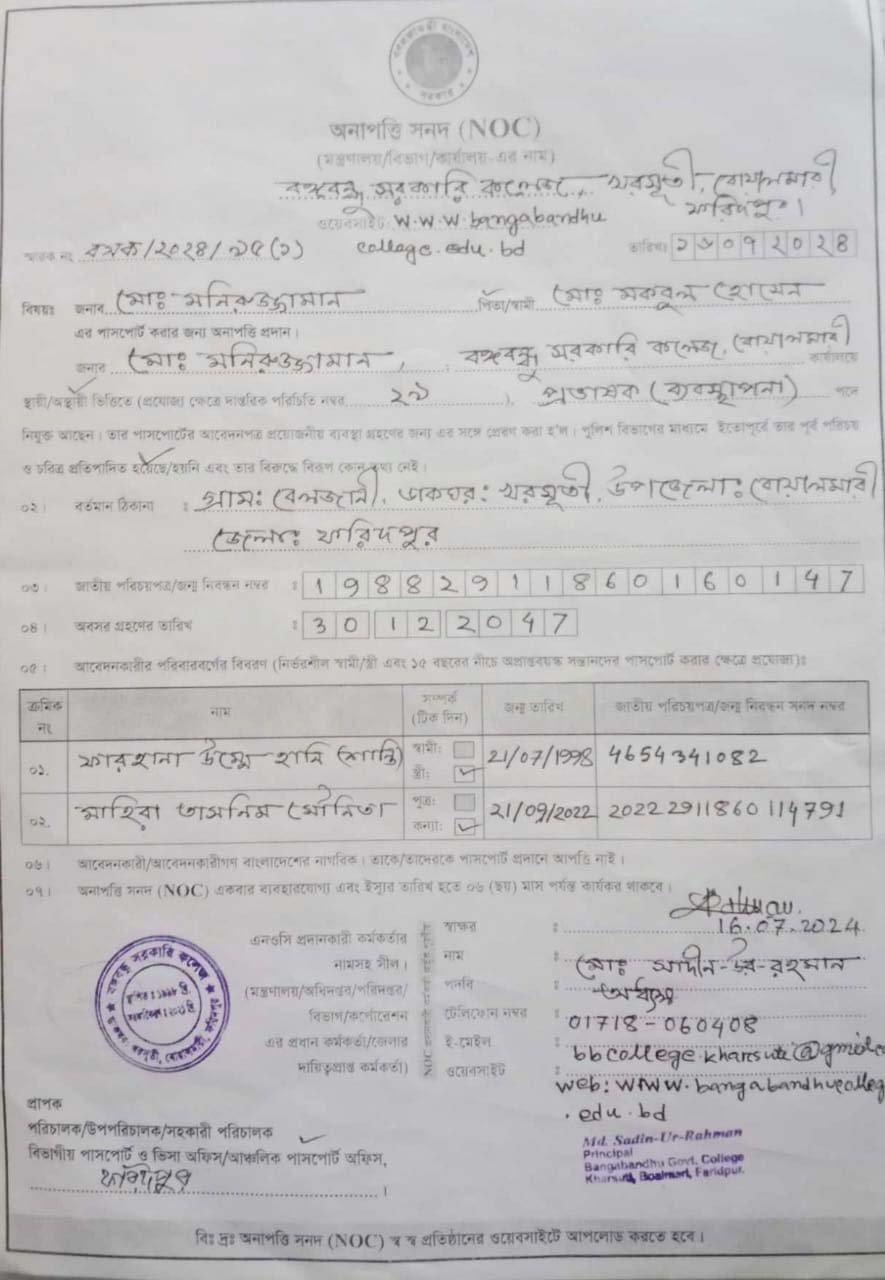 গণপ্রজাতন্ত্রী বাংলাদেশ
সরকার
অনাপত্তি সনদ (NOC)
(মন্ত্রণালয়/বিভাগ/কার্যালয়-এর নাম)
বঙ্গবন্ধু সরকারি কলেজ, খরসূতী, বোয়ালমারী
ফরিদপুর।
ওয়েবসাইট w.w.w.bangabandhu
college.edu.bd
স্মারক নং বসক/২০২৪/৯৫(১)
তারিখঃ ১৬০৭২০২৪
বিষয়ঃ জনাব মোঃ মনিরুজ্জামান পিতা/স্বামী মোঃ মকবুল হোসেন
এর পাসপোর্ট করার জন্য অনাপত্তি প্রদান।
জনাব মোঃ মনিরুজ্জামান, বঙ্গবন্ধু সরকারি কলেজ, বোয়ালমারী কার্যালয়ে
স্থায়ী/অস্থায়ী ভিত্তিতে (প্রযোজ্য ক্ষেত্রে দাপ্তরিক পরিচিতি নম্বর ২৯ ), প্রভাষক (ব্যবস্থাপনা) পদে
নিযুক্ত আছেন। তার পাসপোর্টের আবেদনপত্র প্রয়োজনীয় ব্যবস্থা গ্রহণের জন্য এর সঙ্গে প্রেরণ করা হ'ল। পুলিশ বিভাগের মাধ্যমে ইতোপূর্বে তার পূর্ব পরিচয়
ও চরিত্র প্রতিপাদিত হয়েছে/হয়নি এবং তার বিরুদ্ধে বিরূপ কোন তথ্য নেই।
০২। বর্তমান ঠিকানা : গ্রাম: বেলজানী, ডাকঘর: খরসূতী, উপজেলাঃ বোয়ালমারী
জেলাঃ ফরিদপুর
০৩। জাতীয় পরিচয়পত্র/জন্ম নিবন্ধন নম্বর : 19882911860160147
০৪। অবসর গ্রহণের তারিখ : 30 12 2047
০৫। আবেদনকারীর পরিবারবর্গের বিবরণ (নির্ভরশীল স্বামী/স্ত্রী এবং ১৫ বছরের নীচে অপ্রাপ্তবয়স্ক সন্তানদের পাসপোর্ট করার ক্ষেত্রে প্রযোজ্য)ঃ
ক্রমিক নং নাম সম্পর্ক (টিক দিন) জন্ম তারিখ জাতীয় পরিচয়পত্র/জন্ম নিবন্ধন সনদ নম্বর
০১. ফারহানা উম্মে হানি (শান্তি) স্বামী: স্ত্রী: ✓ 21/07/1998 4654341082
০২. মাহিরা তাসনিম মৌনিতা পুত্র: কন্যা: ✓ 21/09/2022 20222911860114791
০৬। আবেদনকারী/আবেদনকারীগণ বাংলাদেশের নাগরিক। তাকে/তাদেরকে পাসপোর্ট প্রদানে আপত্তি নাই।
০৭। অনাপত্তি সনদ (NOC) একবার ব্যবহারযোগ্য এবং ইস্যুর তারিখ হতে ০৬ (ছয়) মাস পর্যন্ত কার্যকর থাকবে।
এনওসি প্রদানকারী কর্মকর্তার
নামসহ সীল।
(মন্ত্রণালয়/অধিদপ্তর/পরিদপ্তর/
বিভাগ/কর্পোরেশন
এর প্রধান কর্মকর্তা/জেলার
দায়িত্বপ্রাপ্ত কর্মকর্তা)
স্বাক্ষর : 16.07.2024
নাম : মোঃ সাদীন-উর-রহমান
পদবি : অধ্যক্ষ
টেলিফোন নম্বর : 01718-060408
ই-মেইল :
ওয়েবসাইট :
web: www.bangabandhucolleg
.edu.bd
Md. Sadin-Ur-Rahman
Principal
Bangabandhu Govt. College
Kharsuti, Boalmari, Faridpur.
বঙ্গবন্ধু সরকারি কলেজ
প্রাপক
পরিচালক/উপপরিচালক/সহকারী পরিচালক
বিভাগীয় পাসপোর্ট ও ভিসা অফিস/আঞ্চলিক পাসপোর্ট অফিস,
ফরিদপুর ।
বিঃ দ্রঃ অনাপত্তি সনদ (NOC) স্ব স্ব প্রতিষ্ঠানের ওয়েবসাইটে আপলোড করতে হবে।